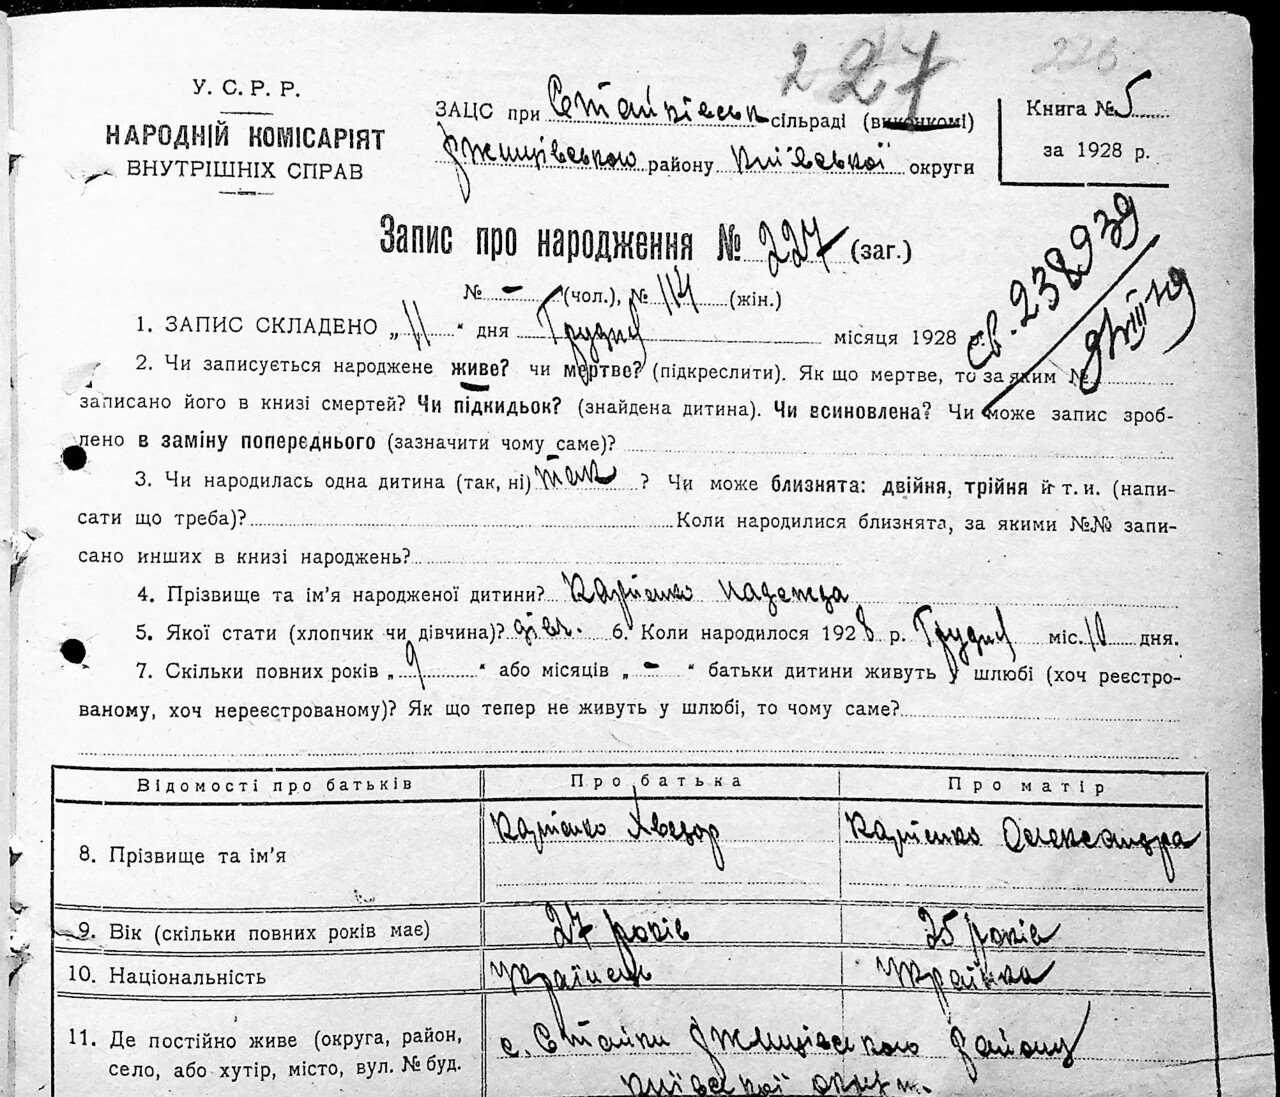 227
226
У. С. Р. Р.
НАРОДНІЙ КОМІСАРІЯТ
ВНУТРІШНІХ СПРАВ
ЗАЦС при Стайківськ сільраді (виконкомі)
Ржищівського району Київської округи
Книга № 5
за 1928 р.
Запис про народження № 227 (заг.)
№ - (чол.), № 114 (жін.)
св. 238939
1. ЗАПИС СКЛАДЕНО „ 11 “ дня Грудня місяця 1928 р.
2. Чи записується народжене живе? чи мертве? (підкреслити). Як що мертве, то за яким №
записано його в книзі смертей? Чи підкидьок? (знайдена дитина). Чи всиновлена? Чи може запис зроб-
лено в заміну попереднього (зазначити чому саме)?
3. Чи народилась одна дитина (так, ні) так ? Чи може близнята: двійня, трійня й т. и. (напи-
сати що треба)? Коли народилися близнята, за якими №№ запи-
сано инших в книзі народжень?
4. Прізвище та ім'я народженої дитини? Карпенко Надежда
5. Якої стати (хлопчик чи дівчина)? дівч. 6. Коли народилось 1928 р. Грудня міс. 10 дня.
7. Скільки повних років „ 9 “ або місяців „ - “ батьки дитини живуть у шлюбі (хоч реєстро-
ваному, хоч нереєстрованому)? Як що тепер не живуть у шлюбі, то чому саме?
Відомості про батьків Про батька Про матір
8. Прізвище та ім'я Карпенко Хведор Карпенко Олександра
9. Вік (скільки повних років має) 27 років 25 років
10. Національність Українець Українка
11. Де постійно живе (округа, район, с. Стайки Ржищівського району
село, або хутір, місто, вул. № буд. Київської округи.